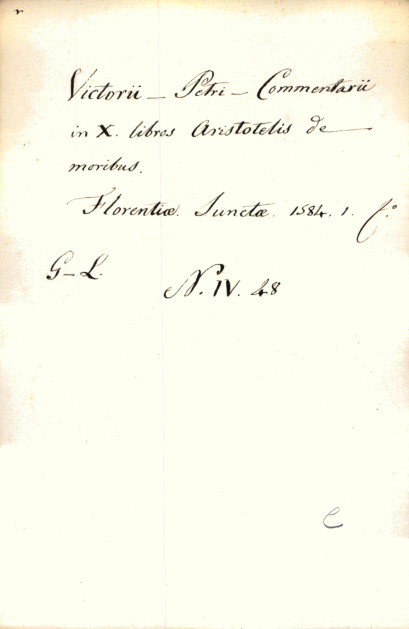 Victorii _ Petri _ Commentarii
in X. libros Aristotelis de
moribus.
Florentiæ. Junctæ. 1584. 1. f.º
G_L.
N. IV. 48
C